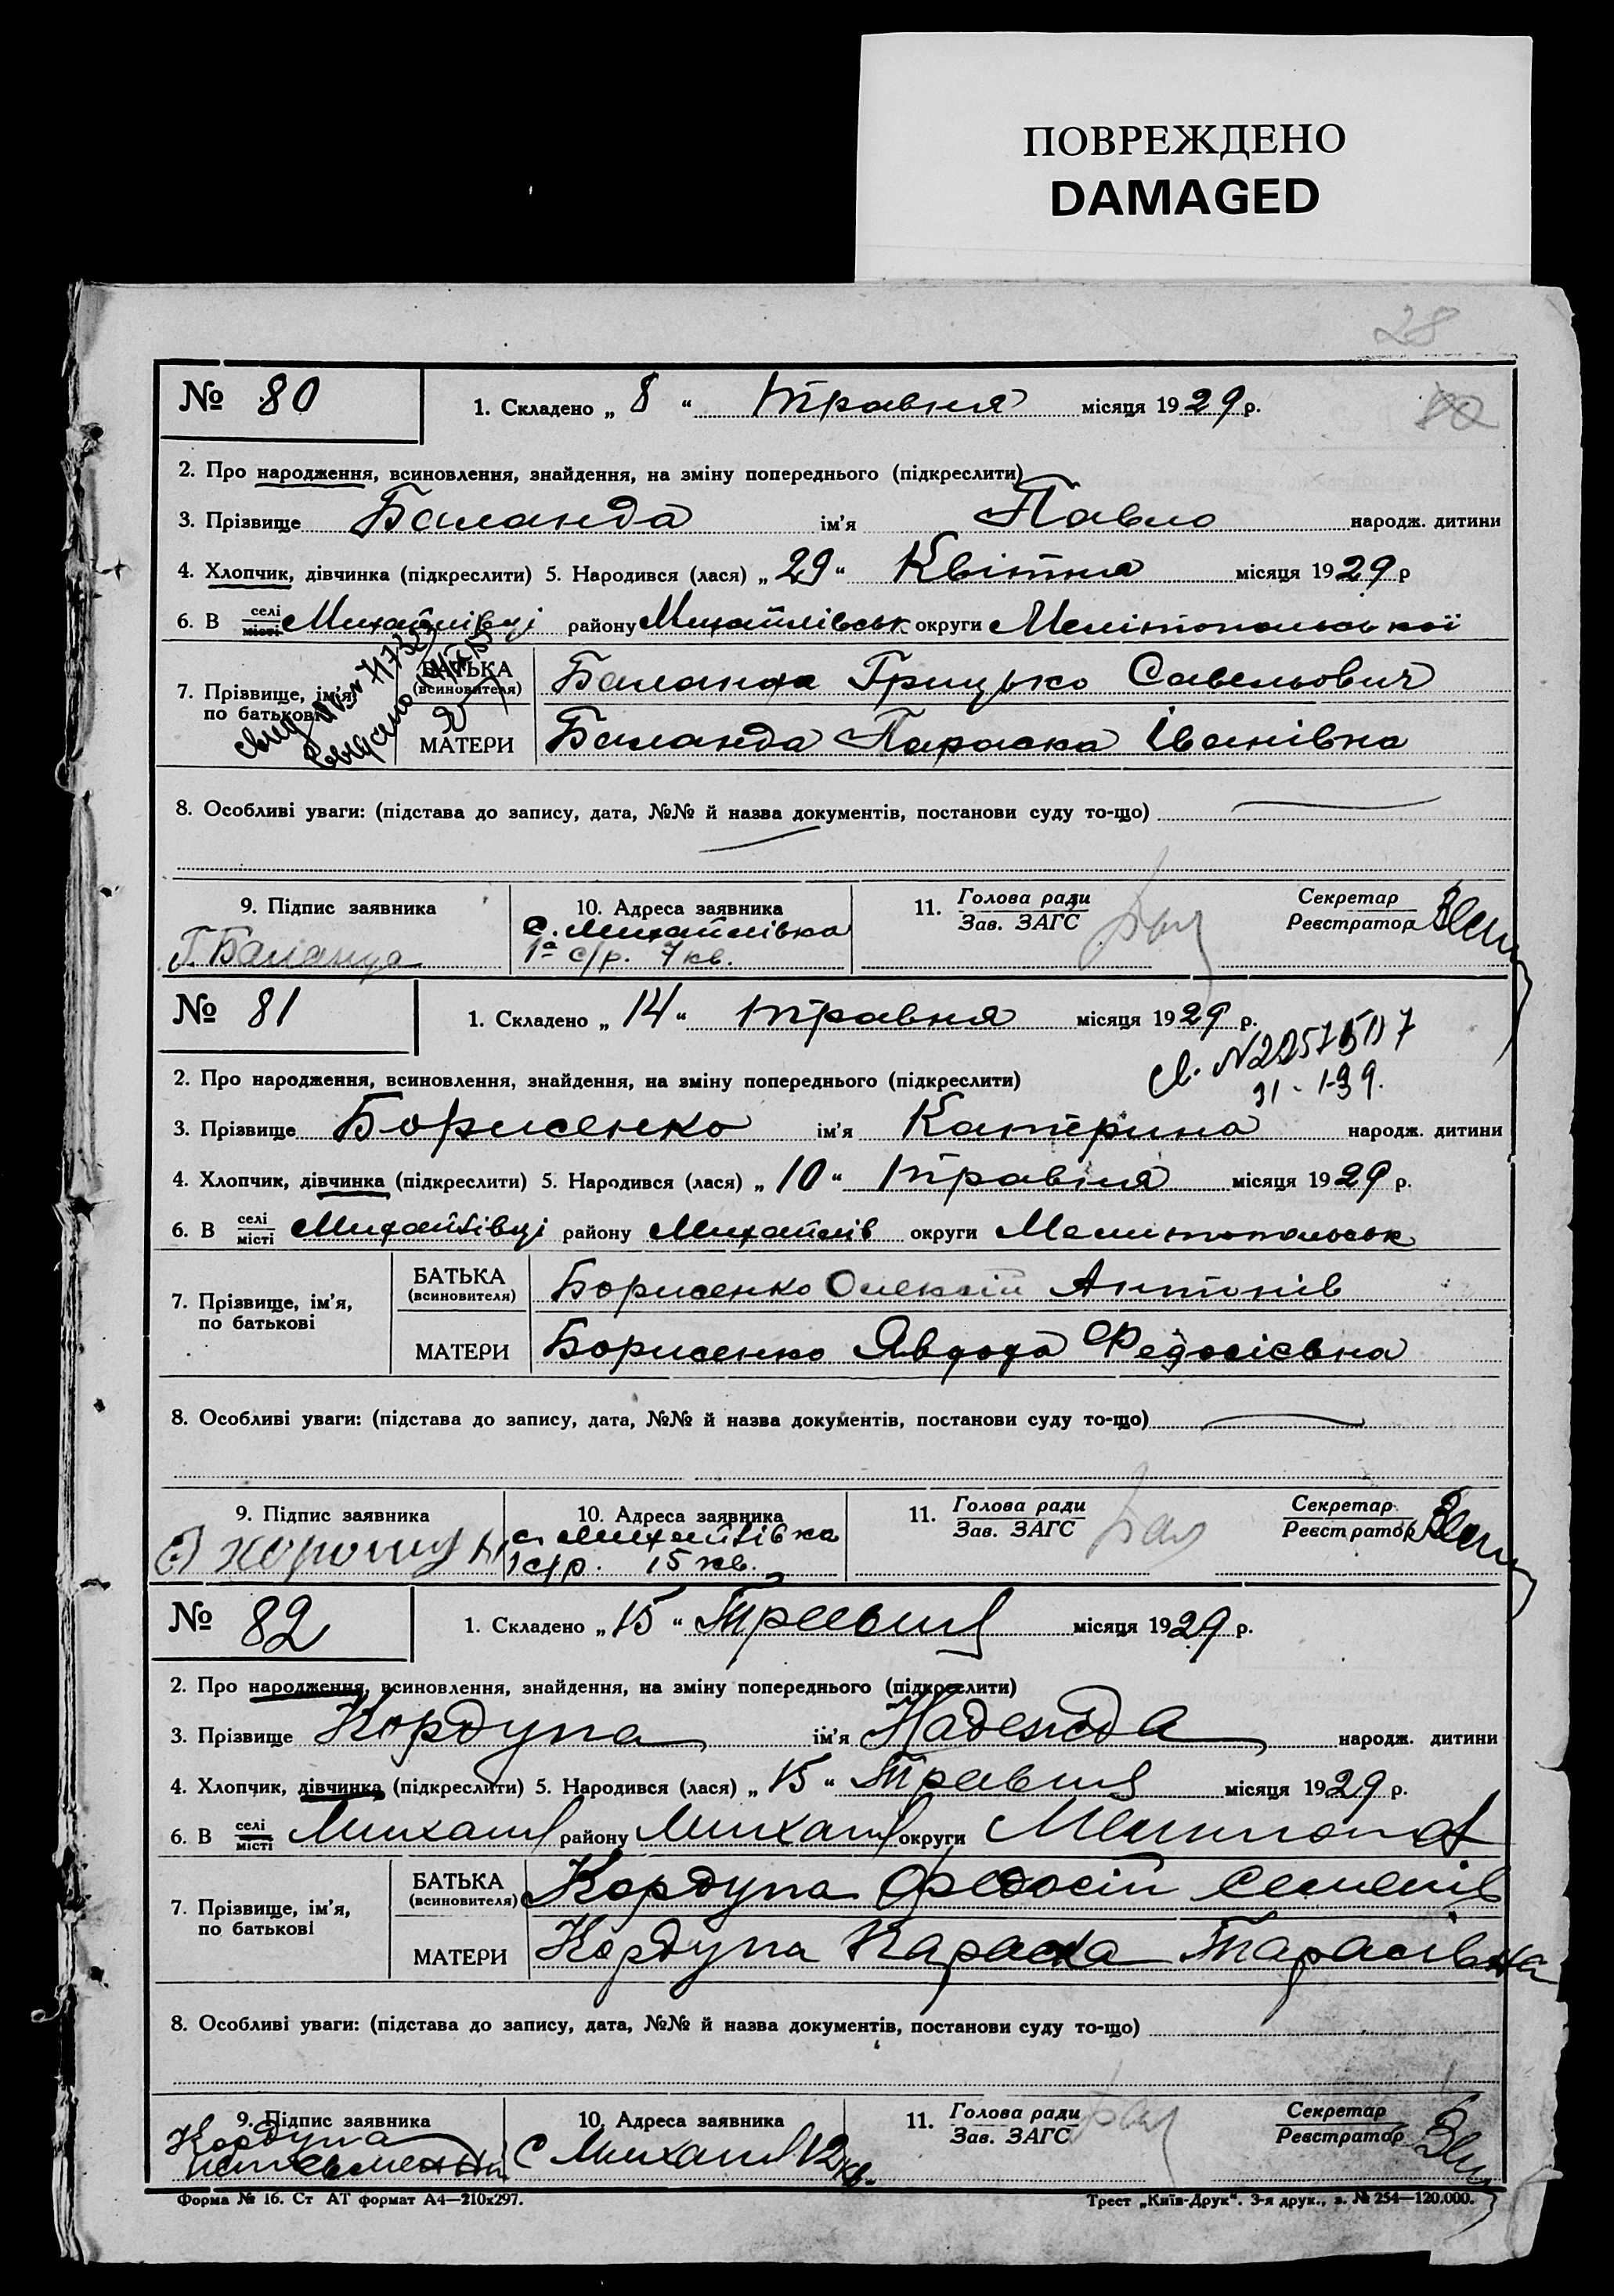 ПОВРЕЖДЕНО
DAMAGED
28
№ 80
1. Складено „ 8 “ травня місяця 1929 р.
2. Про народження, всиновлення, знайдення, на зміну попереднього (підкреслити)
3. Прізвище Баланда ім’я Павло народж. дитини
4. Хлопчик, дівчинка (підкреслити) 5. Народився (лася) „ 29 “ Квітня місяця 1929 р
6. В селі місті Михайлівці району Михайлівськ округи Мелітопольської
7. Прізвище, ім’я, по батькові
БАТЬКА (всиновителя) Баланда Грицько Савельович
МАТЕРИ Баланда Параска Іванівна
8. Особливі уваги: (підстава до запису, дата, №№ й назва документів, постанови суду то-що)
9. Підпис заявника
Г. Баланда
10. Адреса заявника
с. Михайлівка
1а с/р. 7 кв.
11. Голова ради
Зав. ЗАГС
Секретар
Реєстратор
№ 81
1. Складено „ 14 “ травня місяця 1929 р.
2. Про народження, всиновлення, знайдення, на зміну попереднього (підкреслити)
3. Прізвище Борисенко ім’я Катерина народж. дитини
4. Хлопчик, дівчинка (підкреслити) 5. Народився (лася) „ 10 “ травня місяця 1929 р.
6. В селі місті Михайлівці району Михайлів округи Мелитопольськ
7. Прізвище, ім’я, по батькові
БАТЬКА (всиновителя) Борисенко Олексій Антонів
МАТЕРИ Борисенко Явдода Федосієвна
8. Особливі уваги: (підстава до запису, дата, №№ й назва документів, постанови суду то-що)
9. Підпис заявника
10. Адреса заявника
с. Михайлівка
1 с/р. 15 кв.
11. Голова ради
Зав. ЗАГС
Секретар
Реєстратор
№ 82
1. Складено „ 15 “ Травня місяця 1929 р.
2. Про народження, всиновлення, знайдення, на зміну попереднього (підкреслити)
3. Прізвище Кордупа ім’я Надежда народж. дитини
4. Хлопчик, дівчинка (підкреслити) 5. Народився (лася) „ 15 “ Травня місяця 1929 р.
6. В селі місті Михайл району Михайл округи Мелитоп
7. Прізвище, ім’я, по батькові
БАТЬКА (всиновителя) Кордупа Федосій Семенів
МАТЕРИ Кордупа Параска Тарасівна
8. Особливі уваги: (підстава до запису, дата, №№ й назва документів, постанови суду то-що)
9. Підпис заявника
Кордупа
10. Адреса заявника
с Михайл 12 кв.
11. Голова ради
Зав. ЗАГС
Секретар
Реєстратор
Форма № 16. Ст АТ формат А4—210х297.
Трест „Київ-Друк“. 3-я друк., з. № 254—120.000.